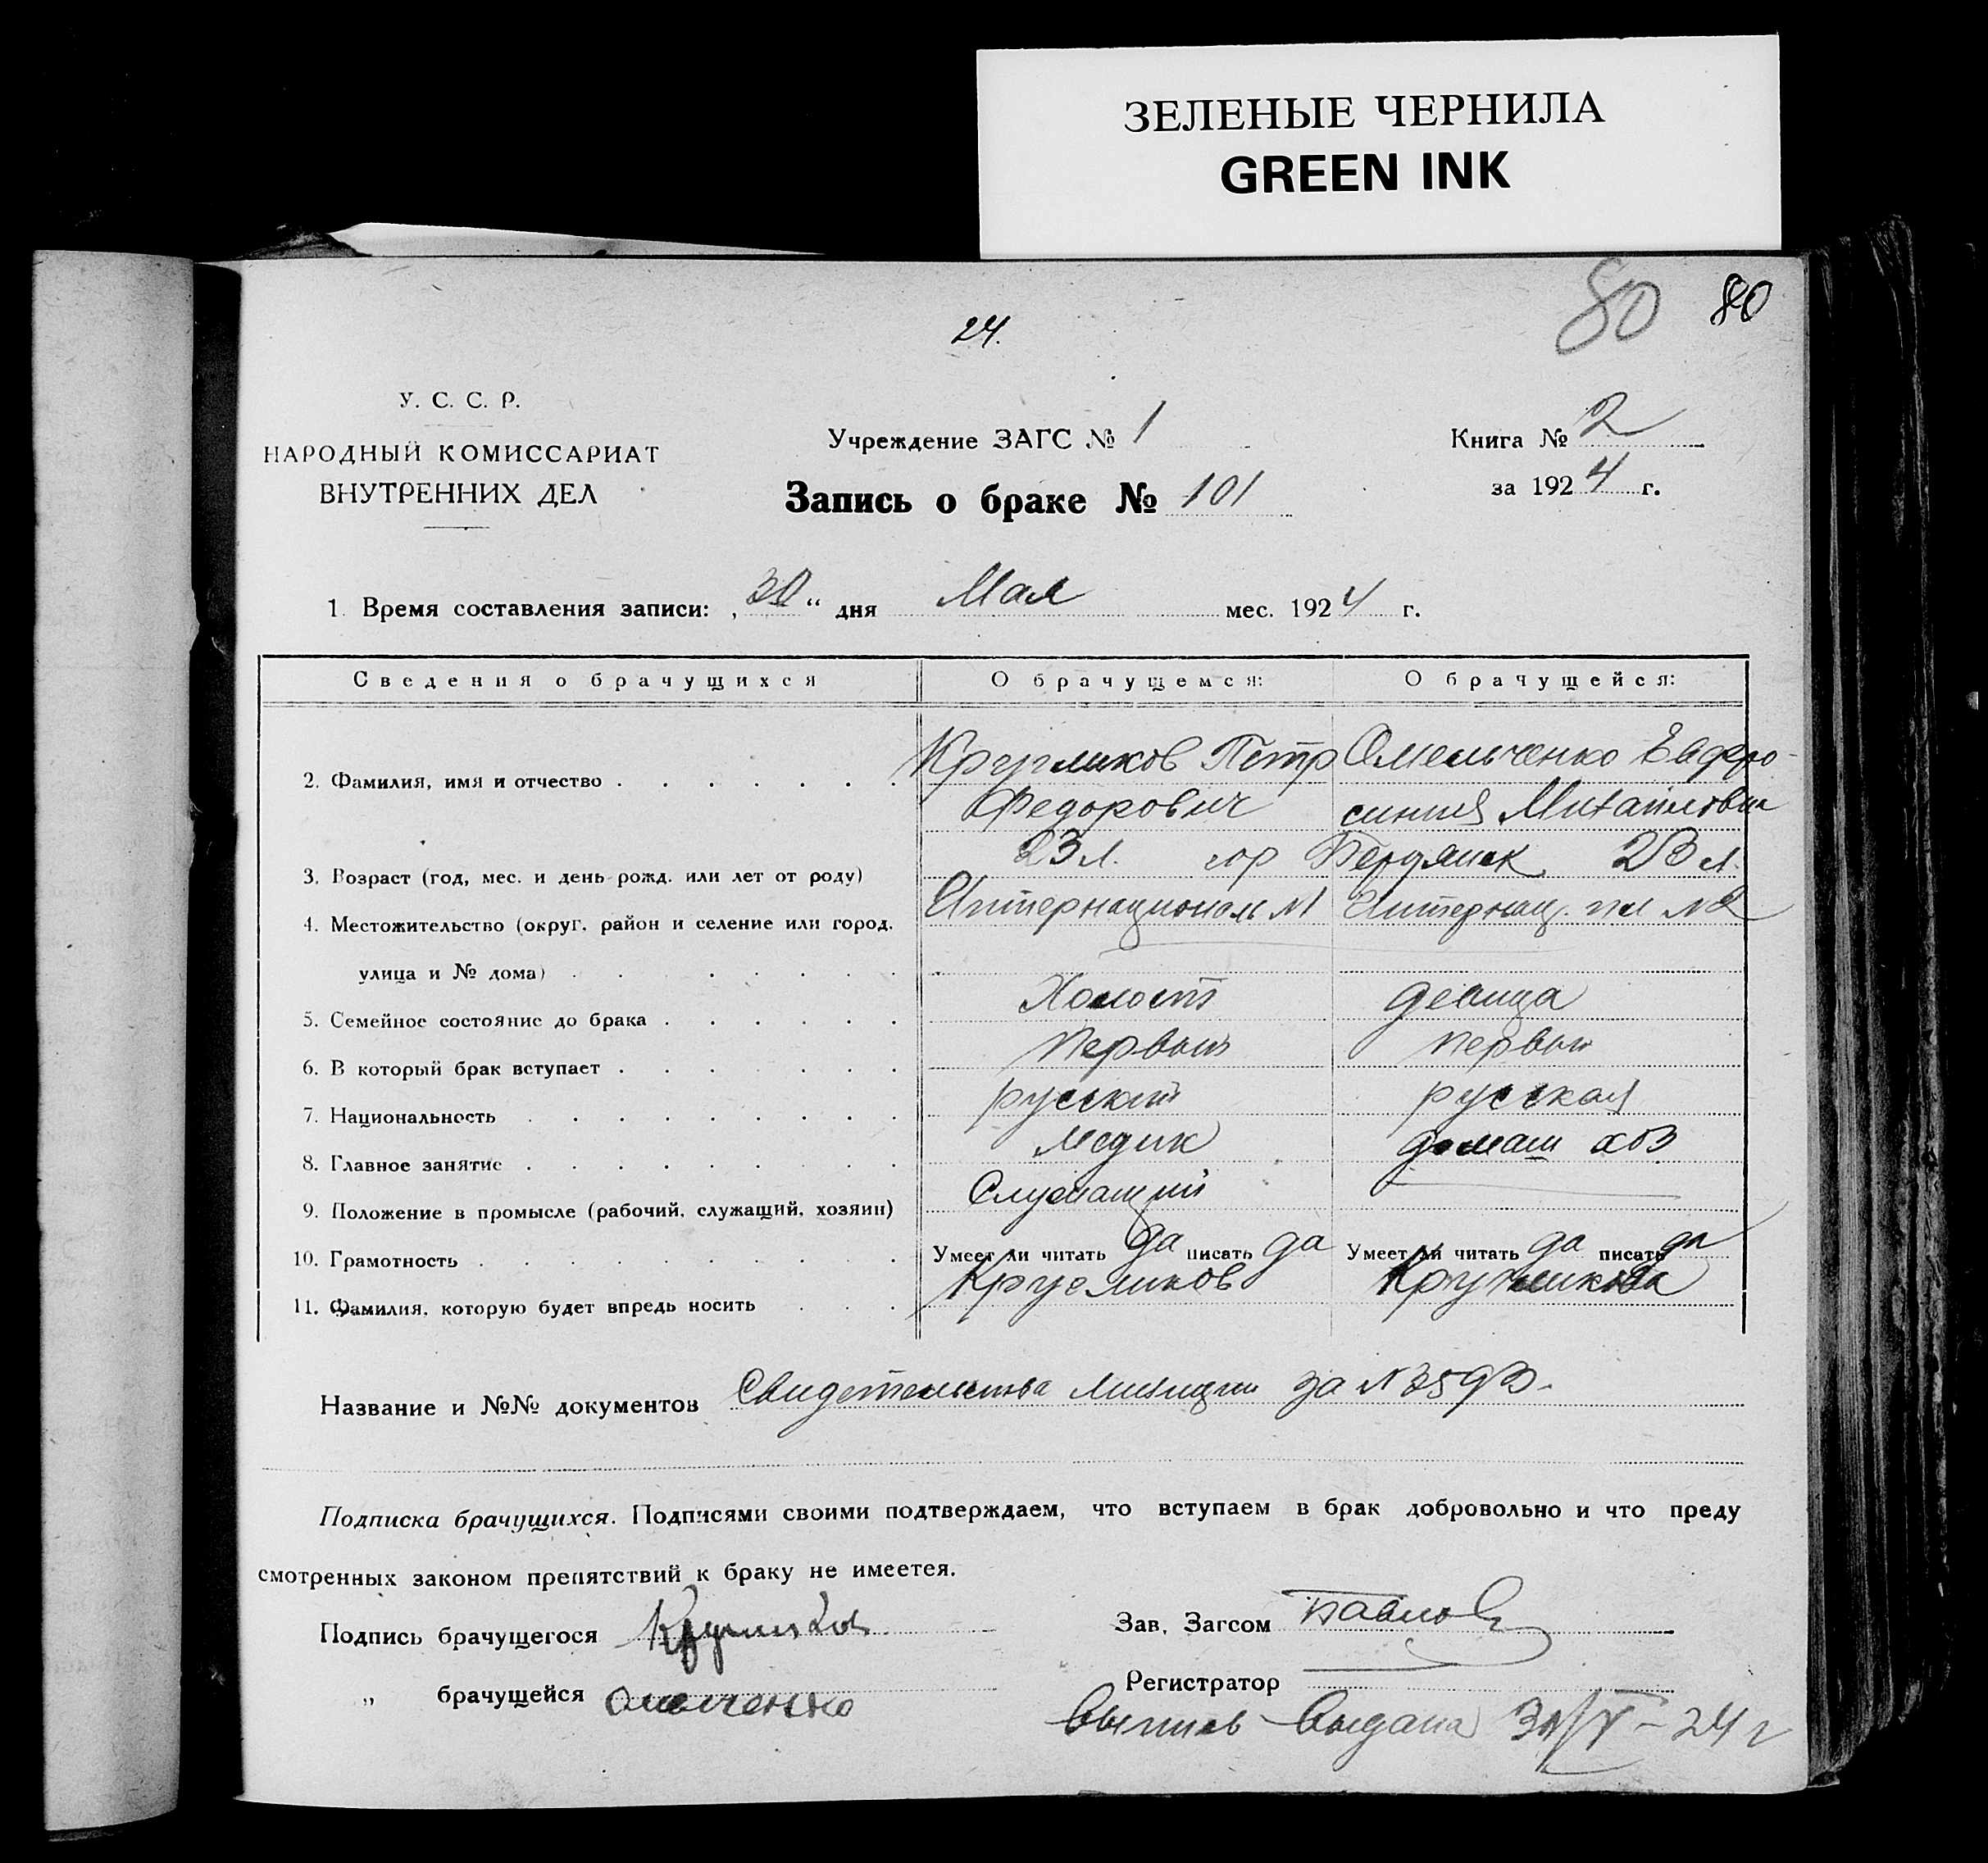 ЗЕЛЕНЫЕ ЧЕРНИЛА
GREEN INK
80 80
24.
У. С. С. Р.
НАРОДНЫЙ КОМИССАРИАТ
ВНУТРЕННИХ ДЕЛ
Учреждение ЗАГС № 1
Запись о браке № 101
Книга № 2
за 1924 г.
1. Время составления записи: „30“ дня Мая мес. 1924 г.
Сведения о брачущихся О брачущемся: О брачущейся:
2. Фамилия, имя и отчество Петр Омельченко Евфро-
Федорович синия Михайловна
3. Возраст (год, мес. и день рожд. или лет от роду) 23 л. гор Бердянск 23 л.
4. Местожительство (округ. район и селение или город, Интернационал №1 Интернац. пл №2
улица и № дома)
5. Семейное состояние до брака Холост девица
6. В который брак вступает Первый первый
7. Национальность русский русская
8. Главное занятие Медик домаш хоз
9. Положение в промысле (рабочий, служащий, хозяин) Служащий
10. Грамотность Умеет ли читать да писать да Умеет ли читать да писать да
11. Фамилия, которую будет впредь носить
Название и №№ документов Свидетельства милиции за №
Подписка брачущихся. Подписями своими подтверждаем, что вступаем в брак добровольно и что преду
смотренных законом препятствий к браку не имеется.
Подпись брачущегося
„ брачущейся Омелченко
Зав. Загсом Павлов
Регистратор
Выпись выдана 30/V-24 г